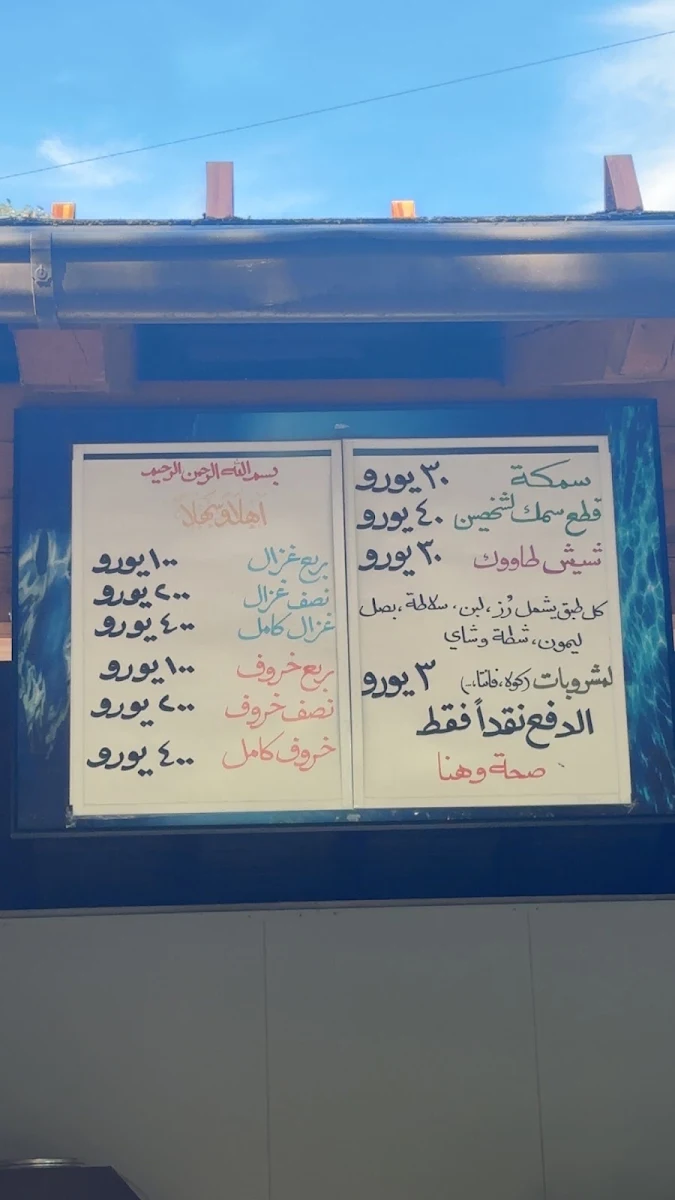 بسم الله الرحمن الرحيم
أهلاً وسهلاً
ربع غزال ١٠٠ يورو
نصف غزال ٢٠٠ يورو
غزال كامل ٤٠٠ يورو
ربع خروف ١٠٠ يورو
نصف خروف ٢٠٠ يورو
خروف كامل ٤٠٠ يورو
سمكة ٣٠ يورو
قطع سمك لشخصين ٤٠ يورو
شيش طاووك ٣٠ يورو
كل طبق يشمل رُز، لبن، سلاطة، بصل
ليمون، شطة وشاي
لمشروبات (كولا، فانتا،..) ٣ يورو
الدفع نقداً فقط
صحة وهنا